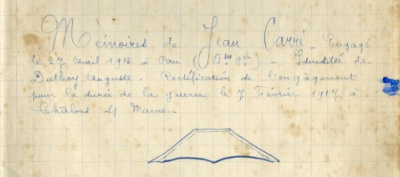 Mémoires de Jean Carré _ Engagé
le 27 avril 1915 à Pau ( ) _ Identité de
Duthoy Auguste _ Rectification de l'engagement
pour la durée de la guerre le 7 Février 1917 à
Châlons s/ Marne _